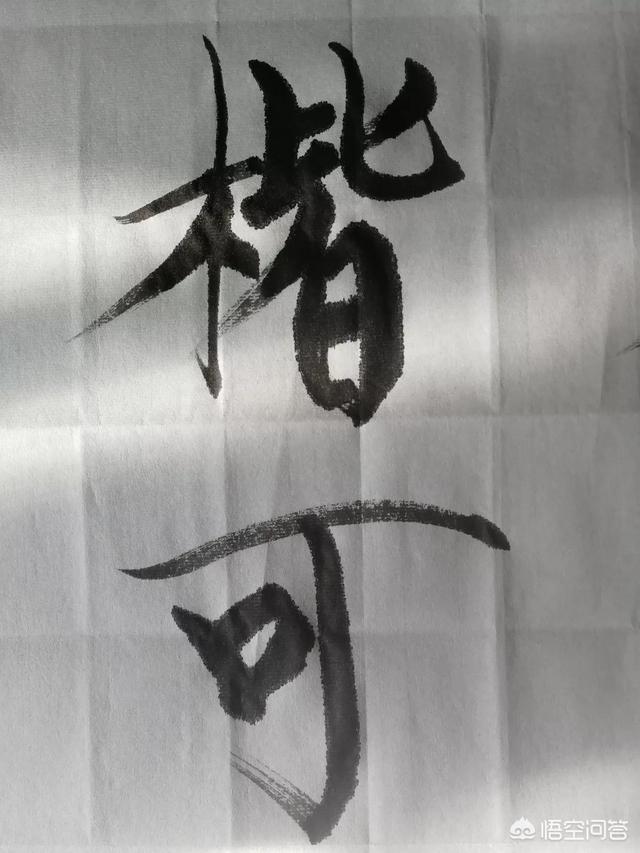 楷
可
悟空问答